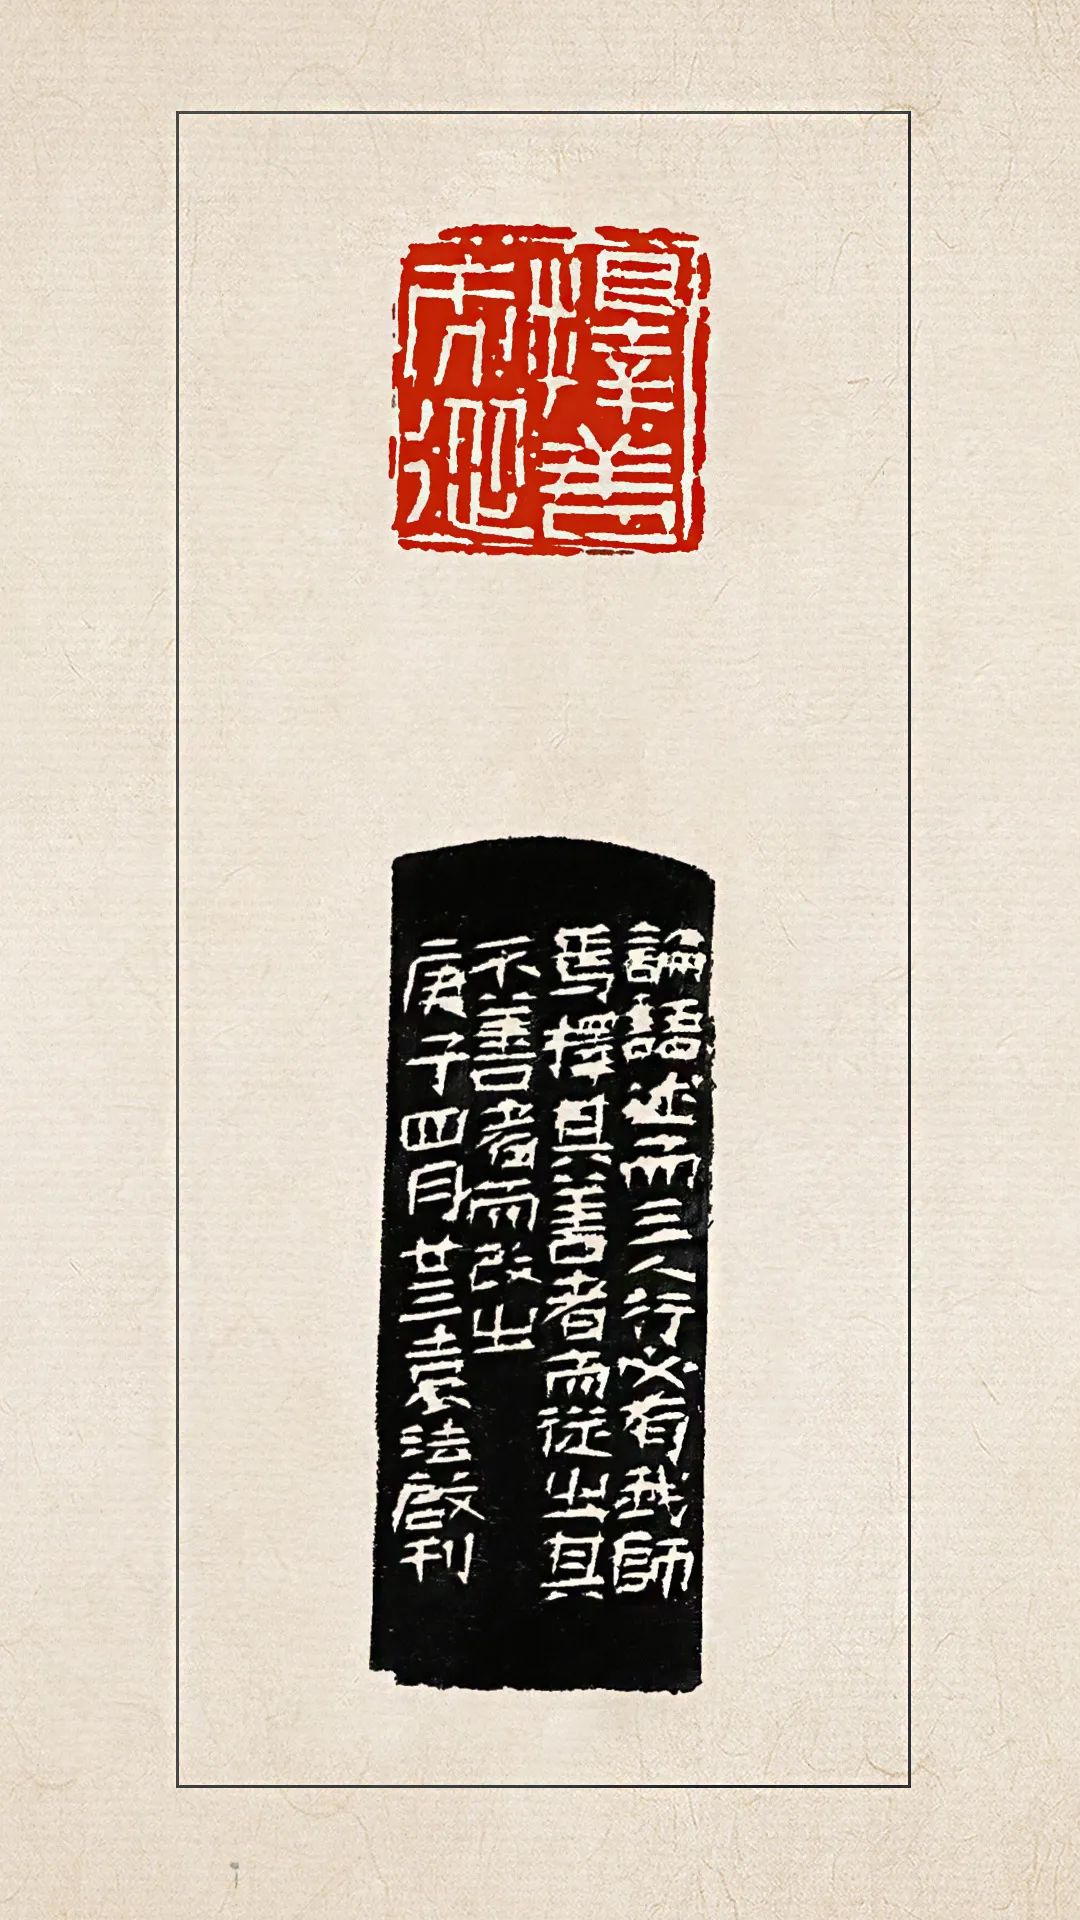 擇善而從
論語述而三人行必有我師
焉擇其善者而從之其
不善者而改之
庚子四月廿三袁法啟刊